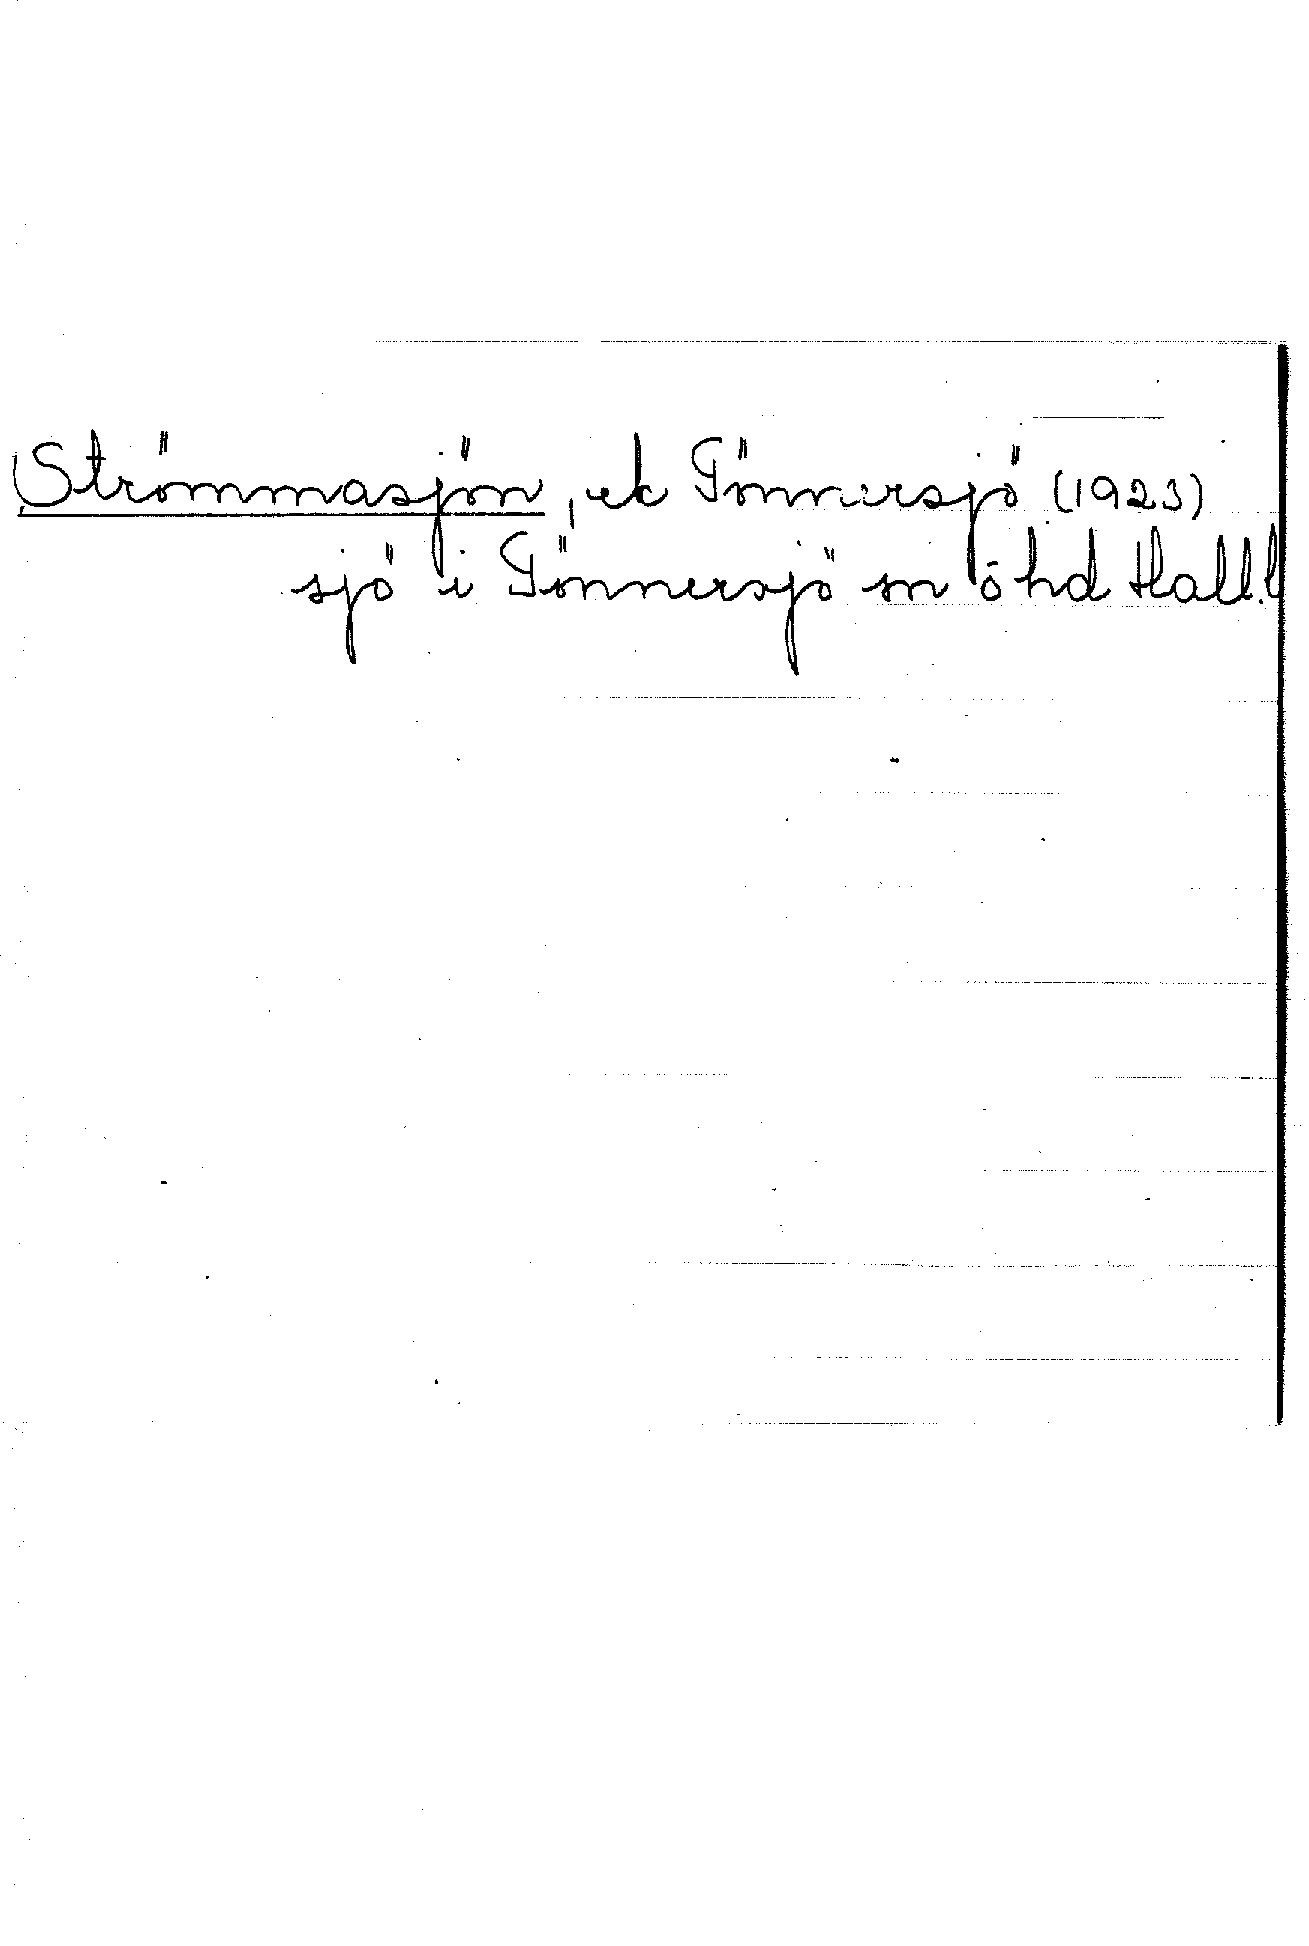 Strömmasjön, ek Tönnersjö (1923)
sjö i Tönnersjö sn ö hd Hall.l